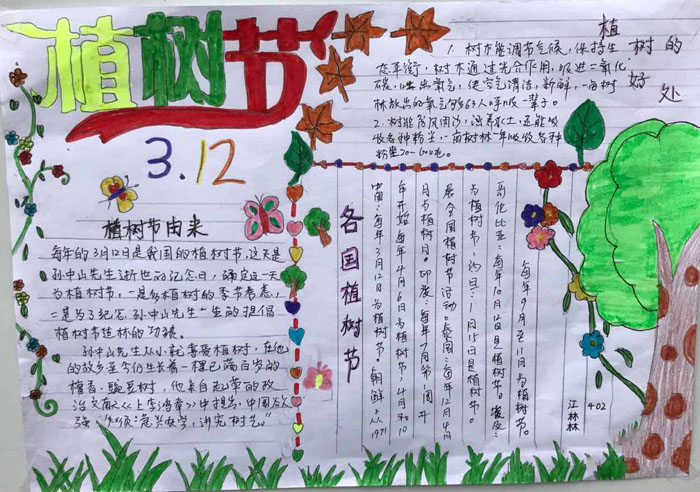 植树节
3.12
植树节由来
每年的3月12日是我国的植树节,这天是
孙中山先生逝世的纪念日,确定这一天
为植树节,一是为植树的季节考虑,
二是为了纪念孙中山先生一生的提倡
植树节造林的功绩。
孙中山先生从小就喜爱植树,在他
的故乡至今仍生长着一棵已满百岁的
檀香、豌豆树,他来自起草的政
治文献《上李鸿章》中提出,中国欲
强"须急兴农学,讲究树艺。"
植树的好处
1.树木能调节气候,保持生
态平衡,树木通过光合作用,吸进二氧化
碳,吐出氧气,使空气清洁、新鲜,一亩树
林放出的氧气够65人呼吸一辈子。
2.树能防风固沙,涵养水土,还能吸
收各种粉尘,一亩树林一年吸收各种
粉尘20-60吨。
各国植树节
中国:每年3月12日为植树节。朝鲜:从1971
年开始每年4月6日为植树节,4月和10
月为植树月。印度:每年7月第一周开
展全国植树节活动。泰国:每年12月4日
为植树节。约旦:1月15日是植树节。
哥伦比亚:每年10月12日是植树节。
每年9月至11月为植树节。
江林林
402